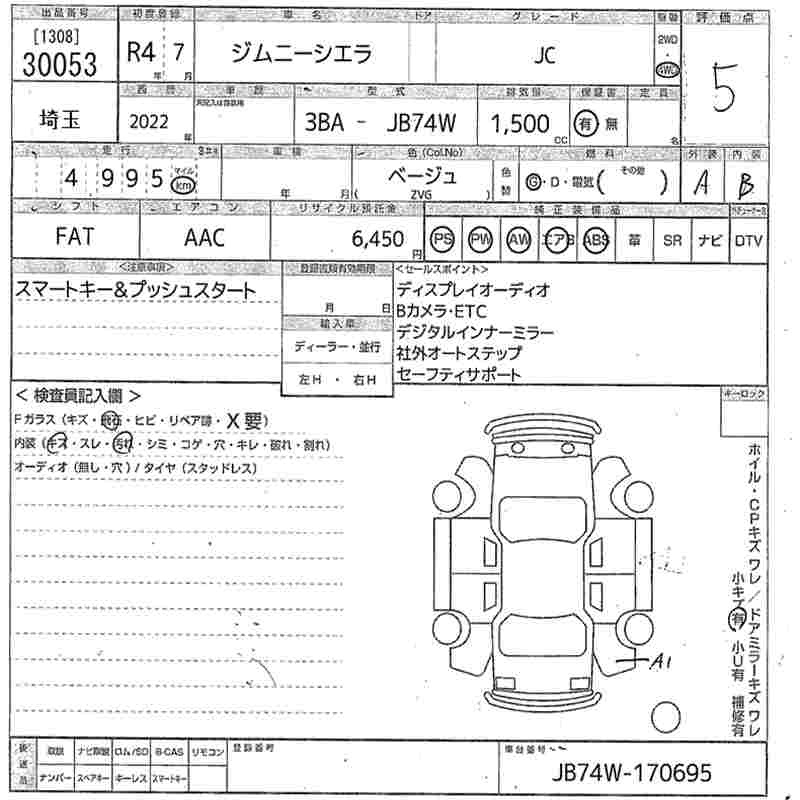 出品番号 初度登録 車名 ドア グレード 駆動 評価点
[1308]
30053 R4 7 ジムニーシエラ JC 2WD・4WD 5
年 月
西暦 車歴 型式 排気量 保証書 定員
埼玉 2022 年 3BA - JB74W 1,500 CC 有 無 名
走行 車検 色(Col.No) 燃料 外装 内装
4 995 マイル km 年 月 ベージュ 色替 G・D・電気( その他 ) A B
( ZVG )
シフト エアコン リサイクル預託金 純正装備品
FAT AAC 6,450 円 PS PW AW エアB ABS 革 SR ナビ DTV
<注意事項> 登録書類有効期限 <セールスポイント>
スマートキー&プッシュスタート 月 日 ディスプレイオーディオ
輸入車 Bカメラ・ETC
ディーラー・並行 デジタルインナーミラー
左H ・ 右H 社外オートステップ
セーフティサポート
<検査員記入欄> キーロック
Fガラス(キズ・飛石・ヒビ・リペア跡・X要)
内装(キズ・スレ・汚れ・シミ・コゲ・穴・キレ・破れ・割れ)
オーディオ(無し・穴)/タイヤ(スタッドレス)
ホイル・CPキズ ワレ/ドアミラーキズ ワレ
小キズ有 小U有 補修有
A1
後送品 取説 ナビ取説 ロム/SD B-CAS リモコン 登録番号 車台番号
ナンバー スペアキー キーレス スマートキー JB74W-170695